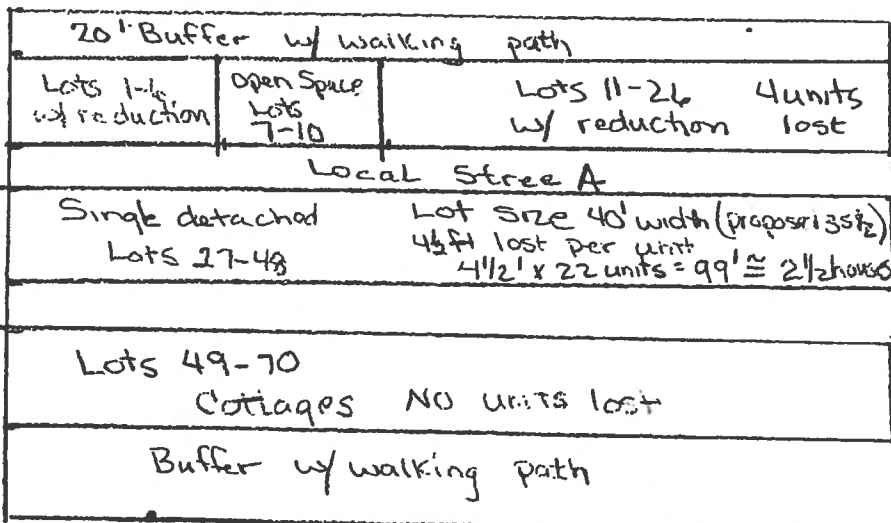 20' Buffer w/ walking path
Lots 1-6
w/ reduction
Open Space
Lots
7-10
Lots 11-26 4 units
w/ reduction lost
Local Stree A
Single detached
Lots 27-48
Lot size 40' width (proposed 35½)
4½ ft lost per unit
4½' x 22 units = 99' ≅ 2½ houses
Lots 49-70
Cottages No units lost
Buffer w/ walking path